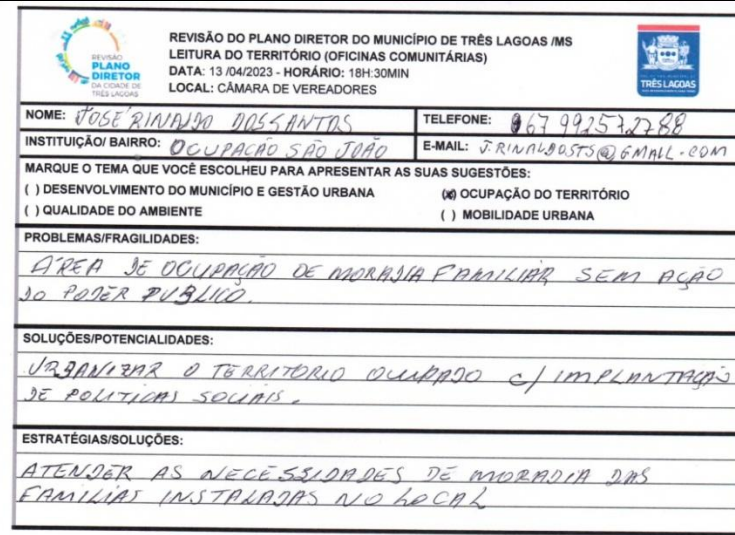 REVISÃO
PLANO
DIRETOR
DA CIDADE DE
TRÊS LAGOAS
REVISÃO DO PLANO DIRETOR DO MUNICÍPIO DE TRÊS LAGOAS /MS
LEITURA DO TERRITÓRIO (OFICINAS COMUNITÁRIAS)
DATA: 13 /04/2023 - HORÁRIO: 18H:30MIN
LOCAL: CÂMARA DE VEREADORES
TRÊS LAGOAS
NOME: JOSÉ RINALDO DOS SANTOS
TELEFONE: 067 992572788
INSTITUIÇÃO/ BAIRRO: OCUPAÇÃO SÃO JOÃO
E-MAIL: J.RINALDOSTS@GMAIL.COM
MARQUE O TEMA QUE VOCÊ ESCOLHEU PARA APRESENTAR AS SUAS SUGESTÕES:
( ) DESENVOLVIMENTO DO MUNICÍPIO E GESTÃO URBANA (x) OCUPAÇÃO DO TERRITÓRIO
( ) QUALIDADE DO AMBIENTE ( ) MOBILIDADE URBANA
PROBLEMAS/FRAGILIDADES:
ÁREA DE OCUPAÇÃO DE MORADIA FAMILIAR SEM AÇÃO
DO PODER PUBLICO.
SOLUÇÕES/POTENCIALIDADES:
URBANIZAR O TERRITÓRIO OCUPADO C/ IMPLANTAÇÃO
DE POLITICAS SOCIAIS.
ESTRATÉGIAS/SOLUÇÕES:
ATENDER AS NECESSIDADES DE MORADIA DAS
FAMILIAS INSTALADAS NO LOCAL